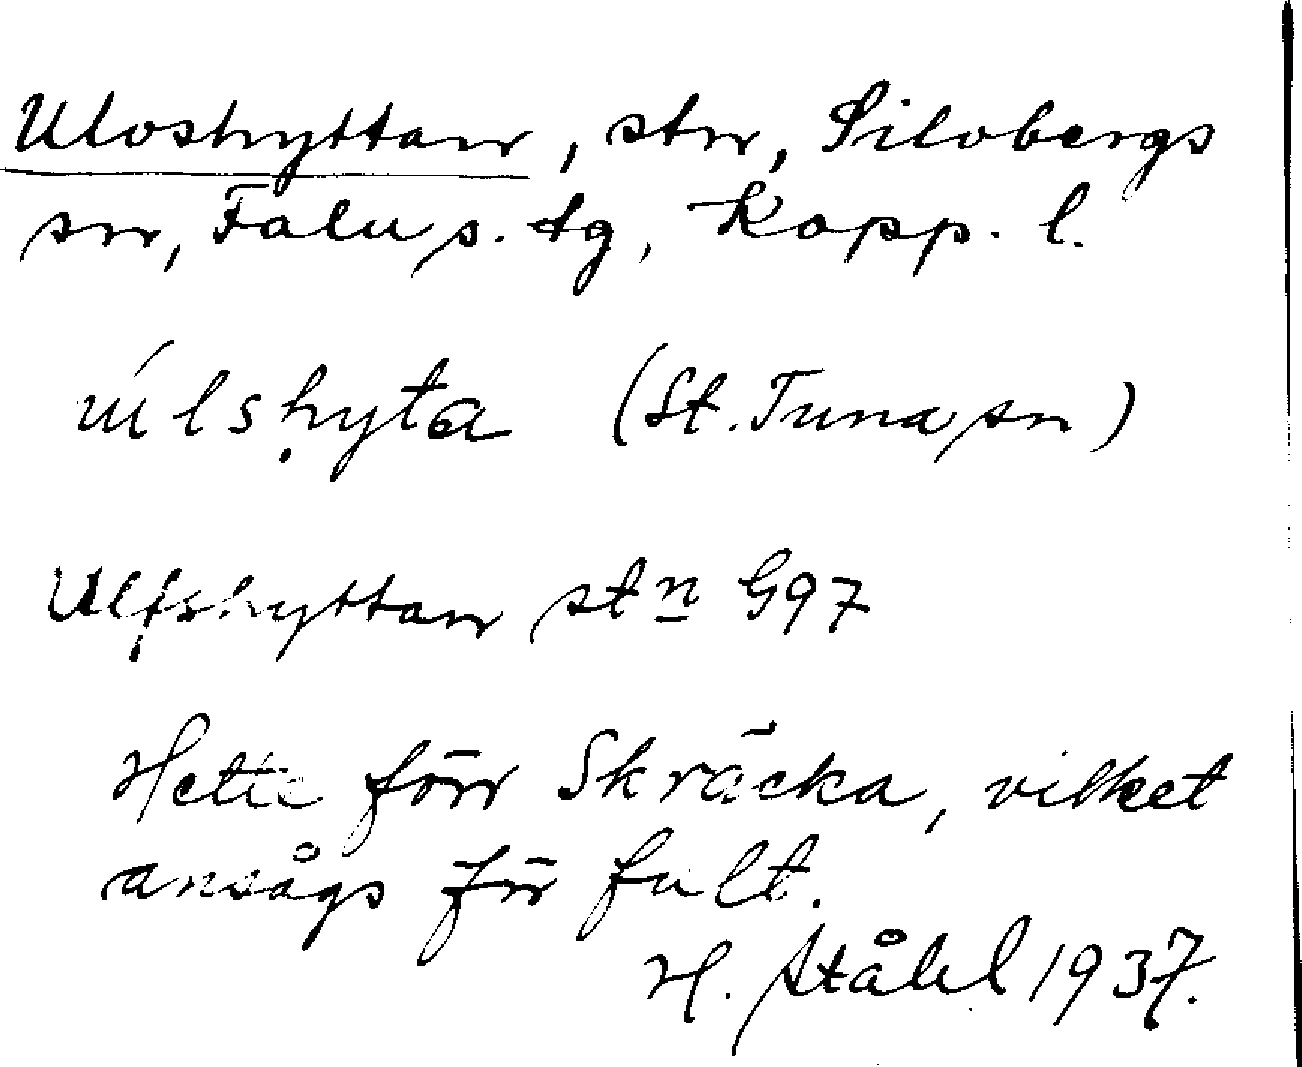 Ulvshyttan, stn, Silvbergs
sn, Falu s. tg, Kopp. l.
úlsḥyta (St. Tuna sn)
Ulfshyttan stn G97
Hette förr Skräcka, vilket
ansågs för fult.
H. Ståhl 1937.